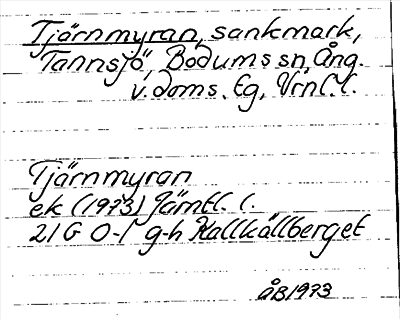 Tjärnmyran, sankmark,
Tannsjö, Bodums sn, Ång.
v. doms. Eg, Vrnl. l.
Tjärnmyran
ek (1973) Jämtl. l.
21G 0-1 g-h Kallkällberget
ÅB1973